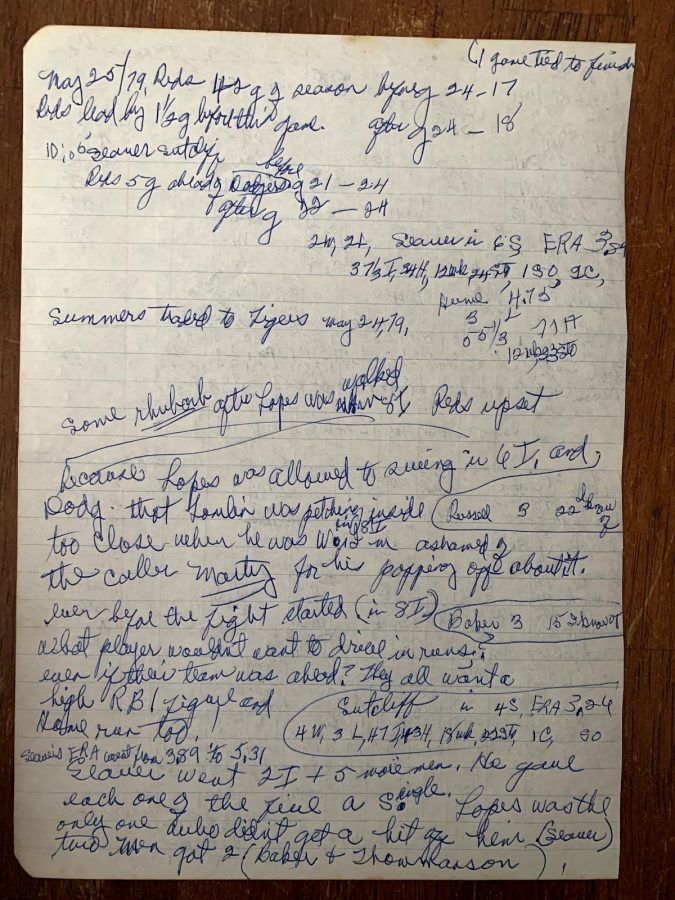 (1 game tied to finish
May 25/79, Reds 42 g of season before g 24-17
Reds lead by 1½ g before this game. after g 24-18
10:06 Seaver Sutcliff
Reds 5g ahead of Dodgers before g 21-24
after g 22-24
2W, 2L, Seaver in 6S, ERA 3.89
37⅓ I, 34H, 12wk, 24 SO, 1SO, 2C,
Hume 4.75
11H
12wk
Summers traded to Tigers May 24, 79,
Some rhubarb after Lopes was walked in 8I Reds upset
because Lopes was allowed to swing in 6I, and
Dodg. that Tomlin was pitching inside
Russell 3 22 I know of
too close when he was in 8I I'm ashamed of
the caller Marty for his popping off about it.
ever before the fight started (in 8I)
Baker 3 15 I know of
what player wouldn't want to drive in runs,
even if their team was ahead? They all want a
high RBI figure and
Home run too.
Sutcliff in 4S, ERA 3.24
4W, 3L, 47 I, 43H, 18wk, 22SO, 1C, SO
Seaver's ERA went from 3.89 to 5.31
Seaver went 2I + 5 more men. He gave
each one of the five a Single. Lopes was the
only one who didn't get a hit off him (Seaver)
two men got 2 (Baker + Thomasson)